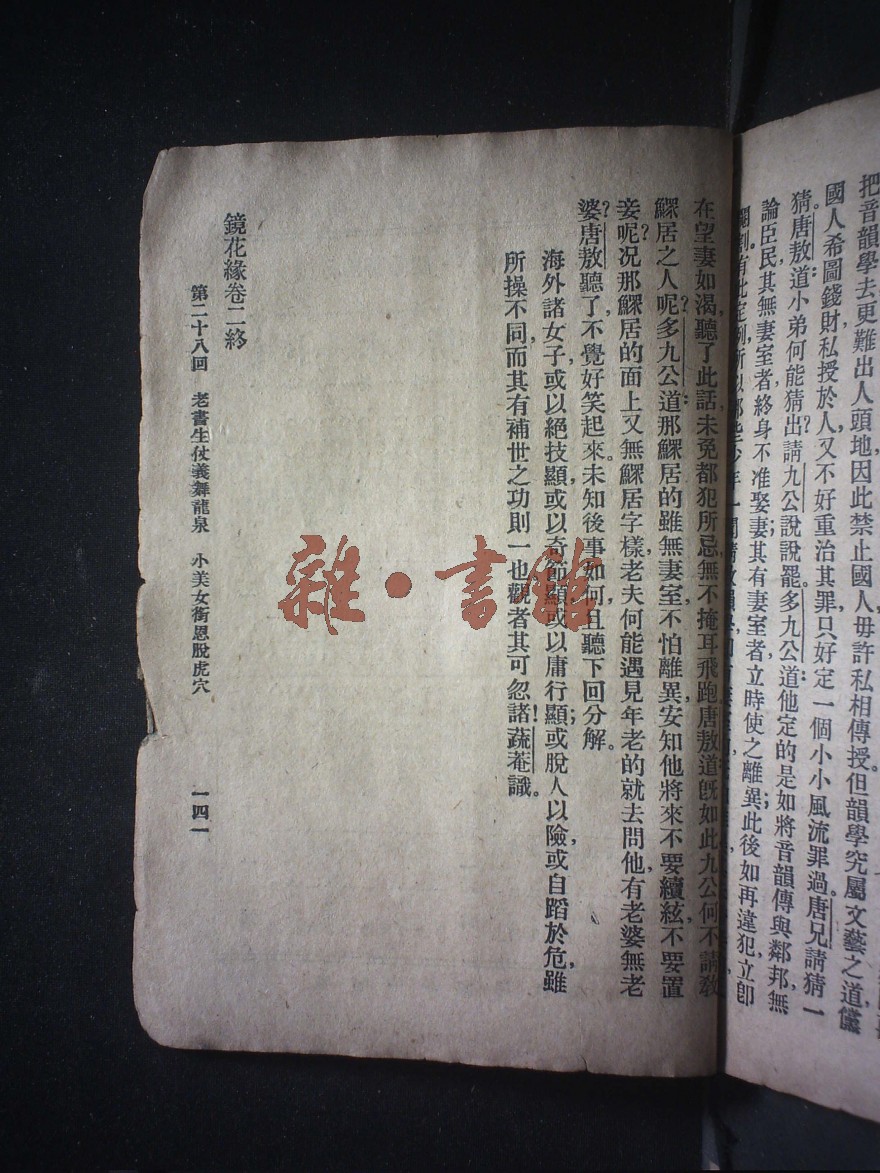 把音韻學去更難出人頭地，因此禁止國人毋許私相傳授。但韻學究屬文藝之道，儻
國人希圖錢財，私授於人，又不好重治其罪，只好定一個小小風流罪過。唐兄請猜一
猜。唐敖道：小弟何能猜出？請九公說說罷。多九公道：他定的是：如將音韻傳與鄰邦，無
論臣民，其無妻室者，終身不准娶妻；其有妻室者，立時使之離異；此後如再違犯，立卽
在望妻如渴，聽了此話，未免都犯所忌，無不掩耳飛跑。唐敖道：旣如此，九公何不請教
鰥居之人呢？多九公道：那鰥居的雖無妻室，不怕離異，安知他將來不要續絃，不要置
妾呢？况那鰥居的面上又無鰥居字樣，老夫何能遇見年老的，就去問他有老婆無老
婆？唐敖聽了，不覺好笑起來。未知後事如何，且聽下回分解。
海外諸女子，或以絕技顯，或以奇節顯，或以庸行顯；或脫人以險，或自蹈於危，雖
所操不同，而其有補世之功則一也。觀者其可忽諸！蔬菴識。
鏡花緣卷二終
第二十八回　老書生仗義舞龍泉　小美女銜恩脫虎穴　一四一
雜·書館